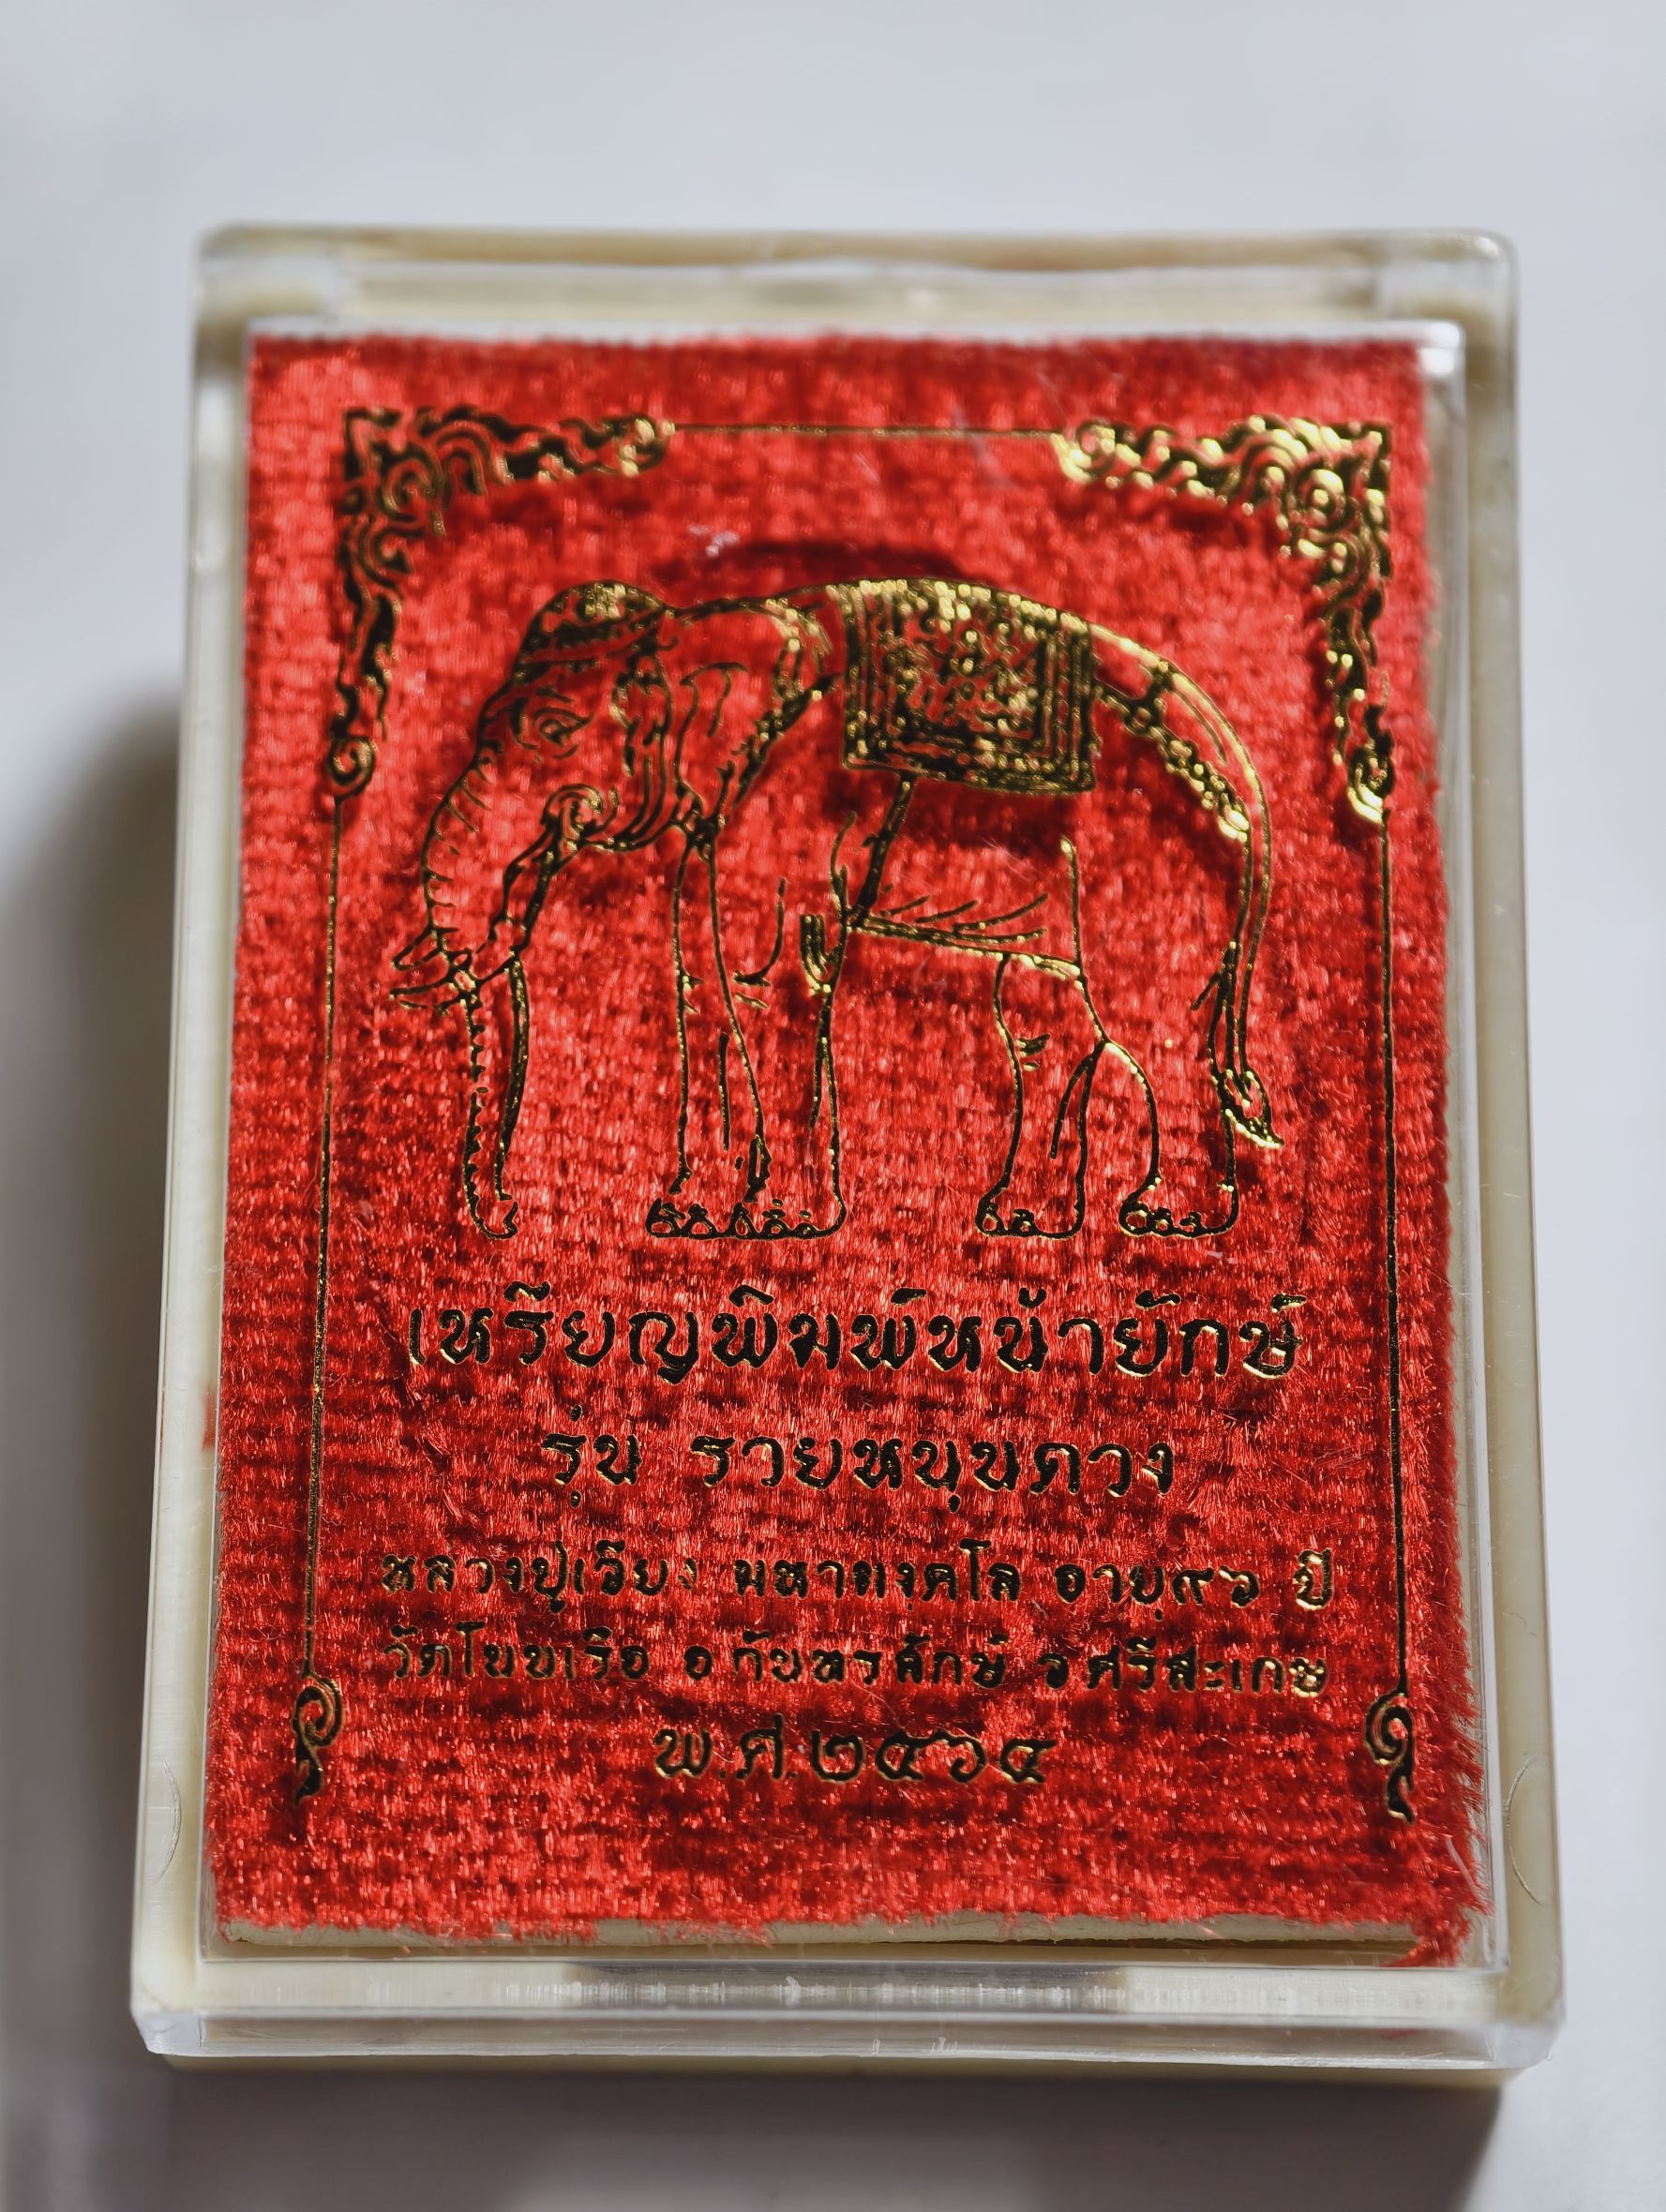 เหรียญพิมพ์หน้ายักษ์
รุ่น รวยหนุนดวง
หลวงปู่เวียง มหามงคโล อายุ๙๖ ปี
วัดโนนเรือ อ กันทรลักษ์ จ ศรีสะเกษ
พ.ศ.๒๕๖๔